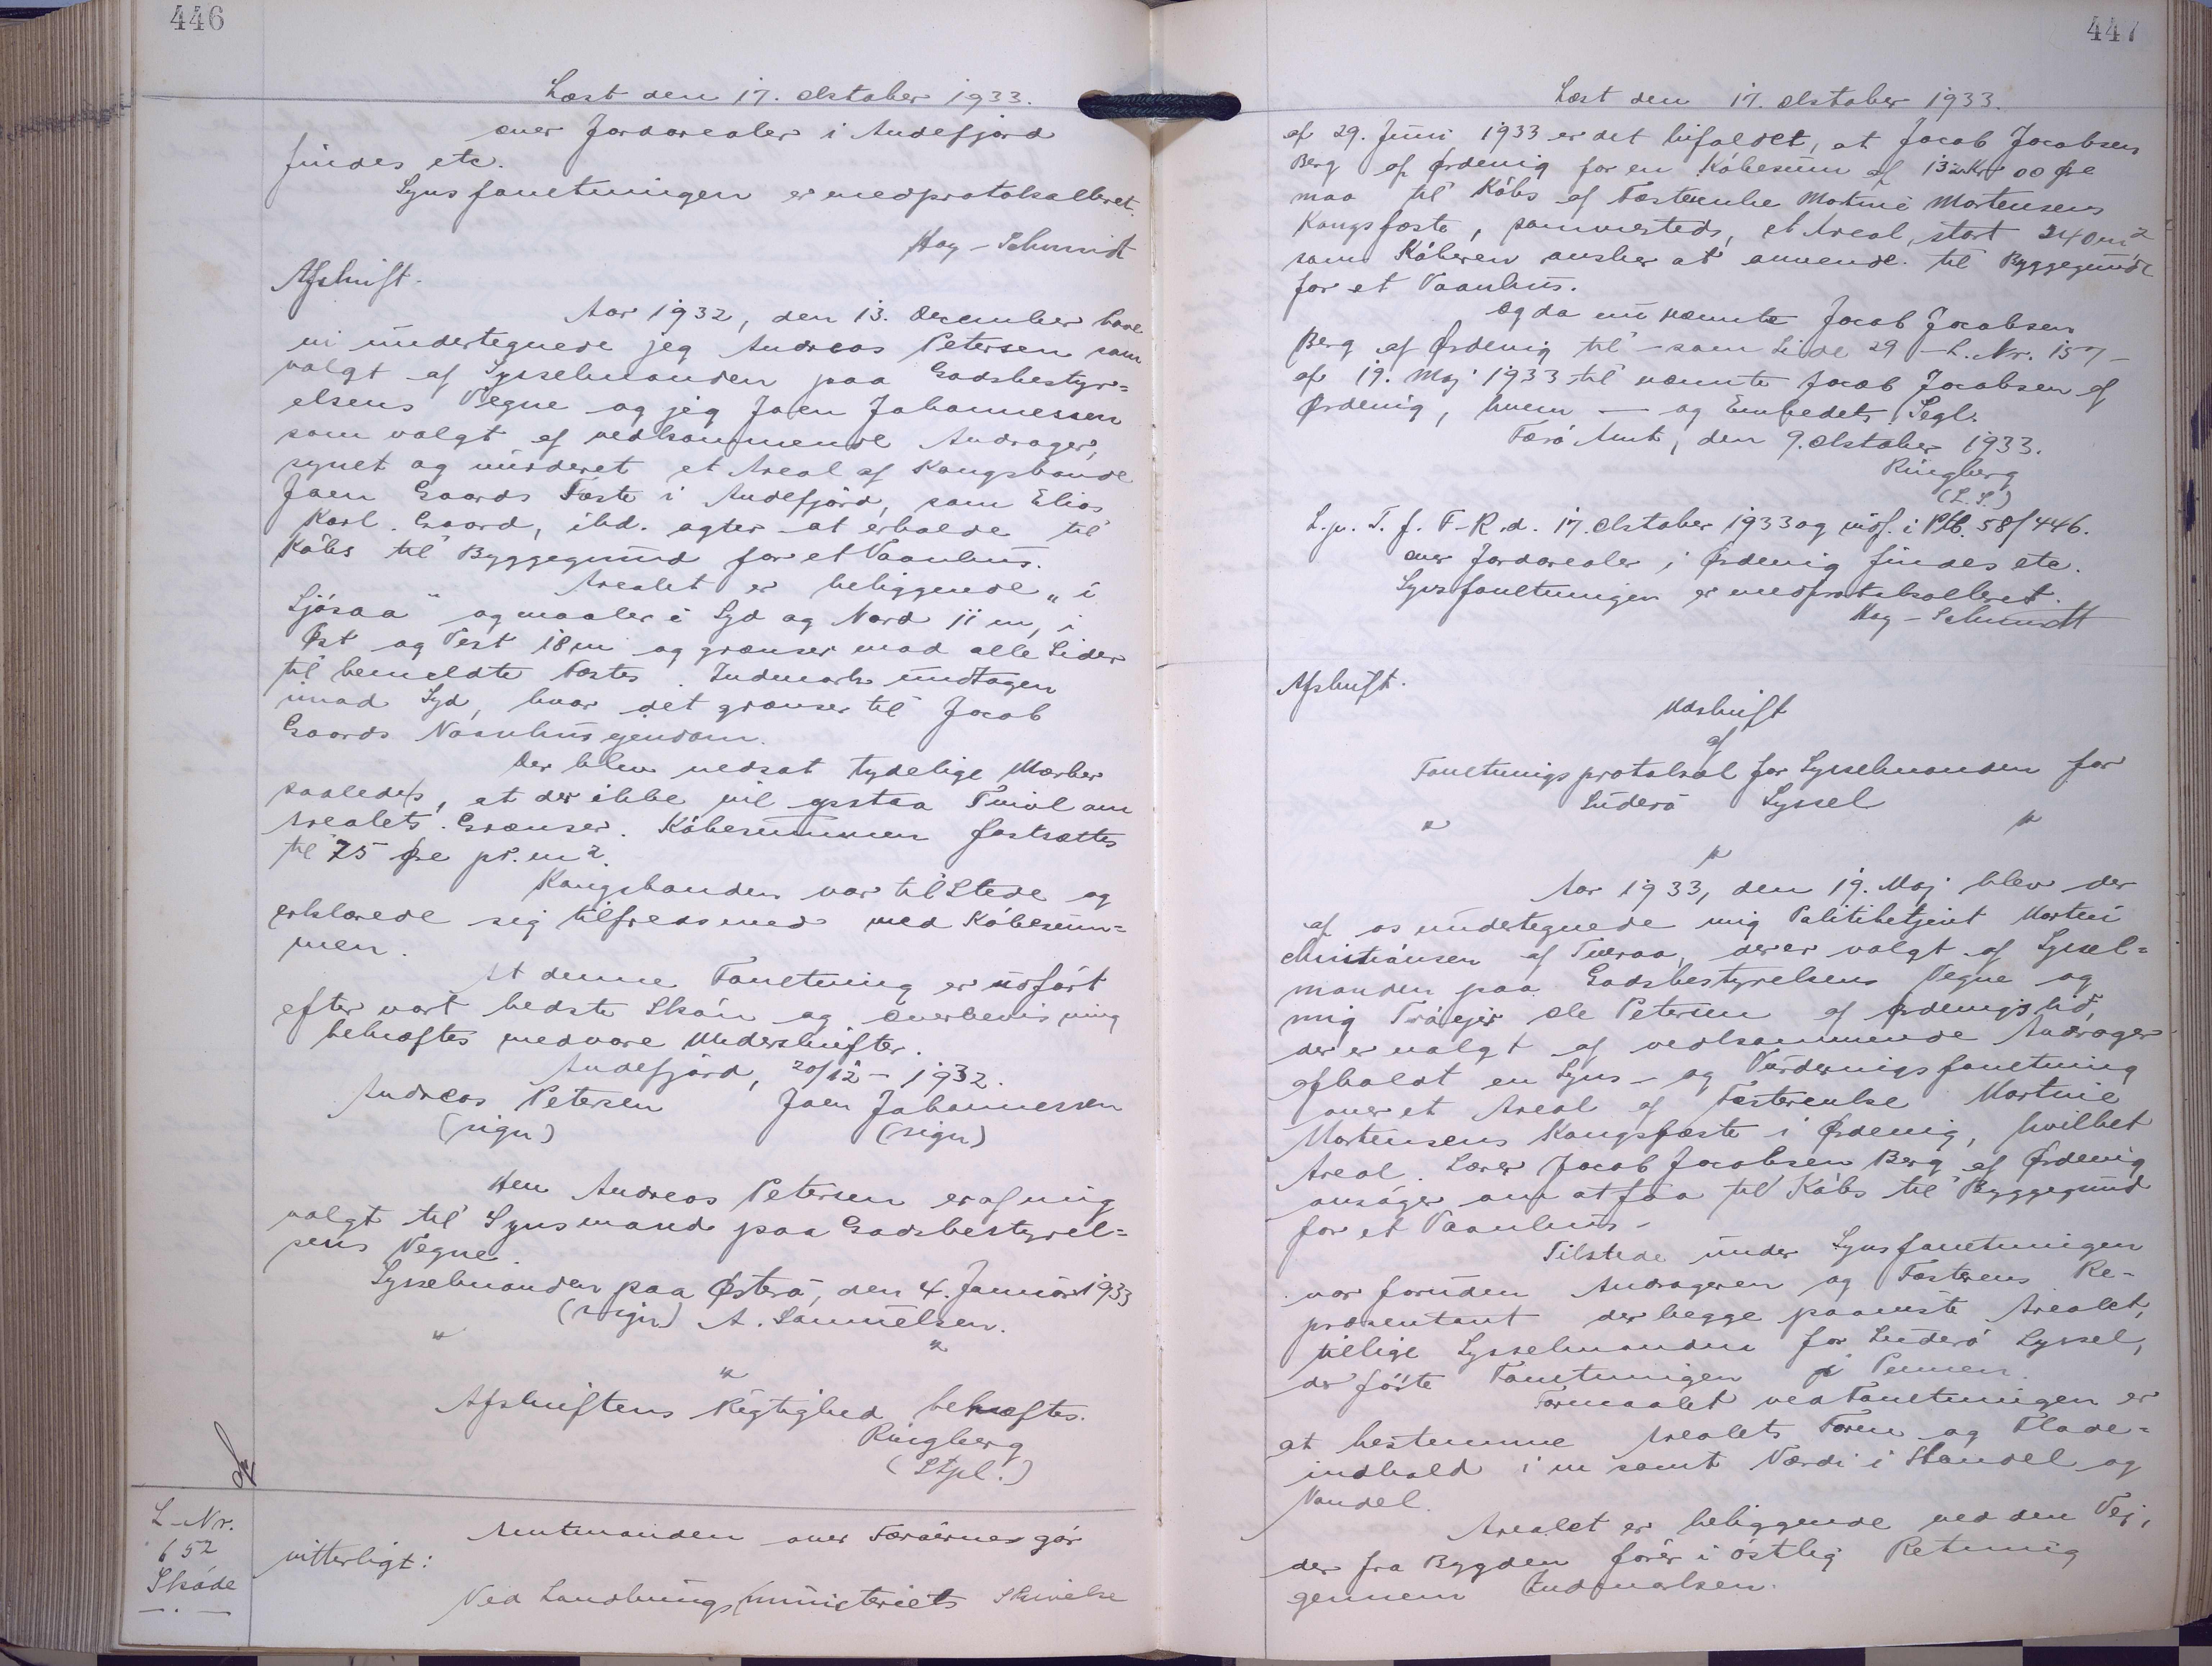 446
Læst den 17. Oktober 1933.
over Jordarealer i Andefjord
findes etc.
Synsforretningen er medprotokolleret.
Hoy-Schmidt
Afskrift.
Aar 1932, den 13. December have
vi undertegnede jeg Andreas Petersen som
valgt af Sysselmanden paa Godsbestyr=
elsens Vegne og jeg Joen Johannessen
som valgt af vedkommende Andrager,
synet og vurderet et Areal af Kongsbonde
Joen Gaards Fæste i Andefjord, som Elias
Karl. Gaard, ibd. agter at erholde til
Købs til Byggegrund for et Vaanhus.
Arealet er beliggende "i
Ljósaa" og maaler i Syd og Nord 11 m, i
Øst og Vest 18 m og grænser mod alle Sider
til bemeldte Fæstes Indmark undtagen
imod Syd, hvor det grænser til Jacob
Gaards Vaanhusejendom.
Der blev nedsat tydelige Mærker
saaledes, at der ikke vil opstaa Tvivl om
Arealets Grænser. Købesummen fastsættes
til 75 Øre pr. m².
Kongsbonden var tilstede og
erklærede sig tilfreds med Købesum=
men.
At denne Forretning er udført
efter vort bedste Skøn og Overbevisning
bekræftes med vore Underskrifter.
Andefjord, 20/12 - 1932.
Andreas Petersen Joen Johannessen
(sign) (sign)
Hen Andreas Petersen er af mig
valgt til Synsmand paa Godsbestyrel=
sens Vegne
Sysselmanden paa Østerø, den 4. Januar 1933
(sign) A. Samuelsen.
" "
"
Afskriftens Rigtighed bekræftes.
Ringberg
(Stpl.)
L-Nr.
652
Skøde
— . —
Amtmanden over Færøerne gør
vitterligt:
Ved Landbrugsministeriets Skrivelse
447
Læst den 17. Oktober 1933.
af 29. Juni 1933 er det bifaldet, at Jacob Jacobsen
Berg af Ørdevig for en Købesum af 132 Kr 00 Øre
maa til Købs af Fæsteenke Martine Mortensens
Kongsfæste, sammesteds, et Areal, stort 240 m²
som Køberen ønsker at anvende til Byggegrund
for et Vaanhus.
Og da nu nævnte Jacob Jacobsen
Berg af Ørdevig til - som Side 29 - L.Nr. 157 -
af 19. Maj 1933 til nævnte Jacob Jacobsen af
Ørdevig, hvem — og Embedets Segl.
Færø Amt, den 9. Oktober 1933.
Ringberg
(L.S.)
L.p. T. f. F-R. d. 17. Oktober 1933 og indf. i Ptb. 58/446.
over Jordarealer i Ørdevig findes etc.
Synsforretningen er medprotokolleret.
Hoy-Schmidt
Afskrift.
Udskrift
af
Forretningsprotokol for Sysselmanden for
Suderø Syssel
" "
"
Aar 1933, den 19. Maj blev der
af os undertegnede mig Politibetjent Morten
Christiansen af Tveraa, der er valgt af Syssel=
manden paa Godsbestyrelsens Vegne og
mig Ole Petersen af Ørdevigslid,
der er valgt af vedkommende Andrager
afholdt en Syns- og Vurderingsforretning
over et Areal af Fæsterenke Martine
Mortensens Kongsfæste i Ørdevig, hvilket
Areal. Lærer Jacob Jacobsen Berg af Ørdevig
ansøger om at faa til Købs til Byggegrund
for et Vaanhus -
Tilstede under Synsforretningen
var foruden Andrageren og Fæsterens Re-
præsentant der begge paaviste Arealet,
tillige Sysselmanden for Suderø Syssel,
der førte Forretningen i Pennen.
Formaalet ved Forretningen er
at bestemme Arealets Form og Flade=
indhold i m samt Værdi i Handel og
Vandel.
Arealet er beliggende ved den Vej,
der fra Bygden fører i østlig Retning
gennem Indmarken.